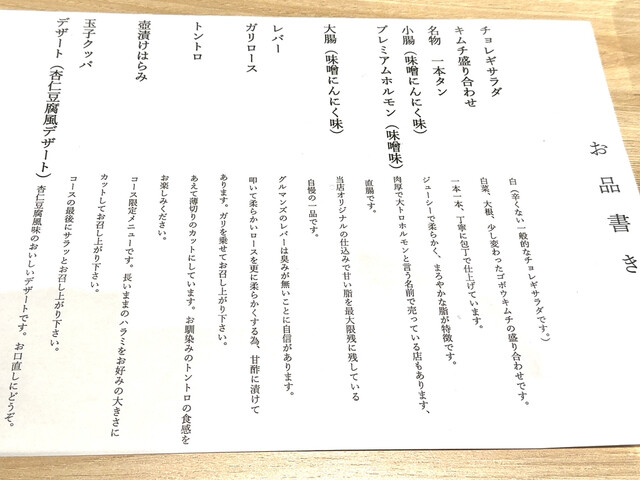 お品書き
チョレギサラダ
白（辛くない一般的なチョレギサラダです。）
キムチ盛り合わせ
白菜、大根、少し変わったゴボウキムチの盛り合わせです。
名物　一本タン
一本一本、丁寧に包丁で仕上げています。
小腸（味噌にんにく味）
ジューシーで柔らかく、まろやかな脂が特徴です。
プレミアムホルモン（味噌味）
肉厚で大トロホルモンと言う名前で売っている店もあります、
直腸です。
大腸（味噌にんにく味）
当店オリジナルの仕込みで甘い脂を最大限に残している
自慢の一品です。
レバー
グルマンズのレバーは臭みが無いことに自信があります。
ガリロース
叩いて柔らかいロースを更に柔らかくする為、甘酢に漬けて
あります。ガリを乗せてお召し上がり下さい。
トントロ
あえて薄切りのカットにしています。お馴染みのトントロの食感を
お楽しみください。
壺漬けはらみ
コース限定メニューです。長いままのハラミをお好みの大きさに
カットしてお召し上がり下さい。
玉子クッパ
コースの最後にサラッとお召し上がり下さい。
デザート（杏仁豆腐風デザート）
杏仁豆腐風味のおいしいデザートです。お口直しにどうぞ。